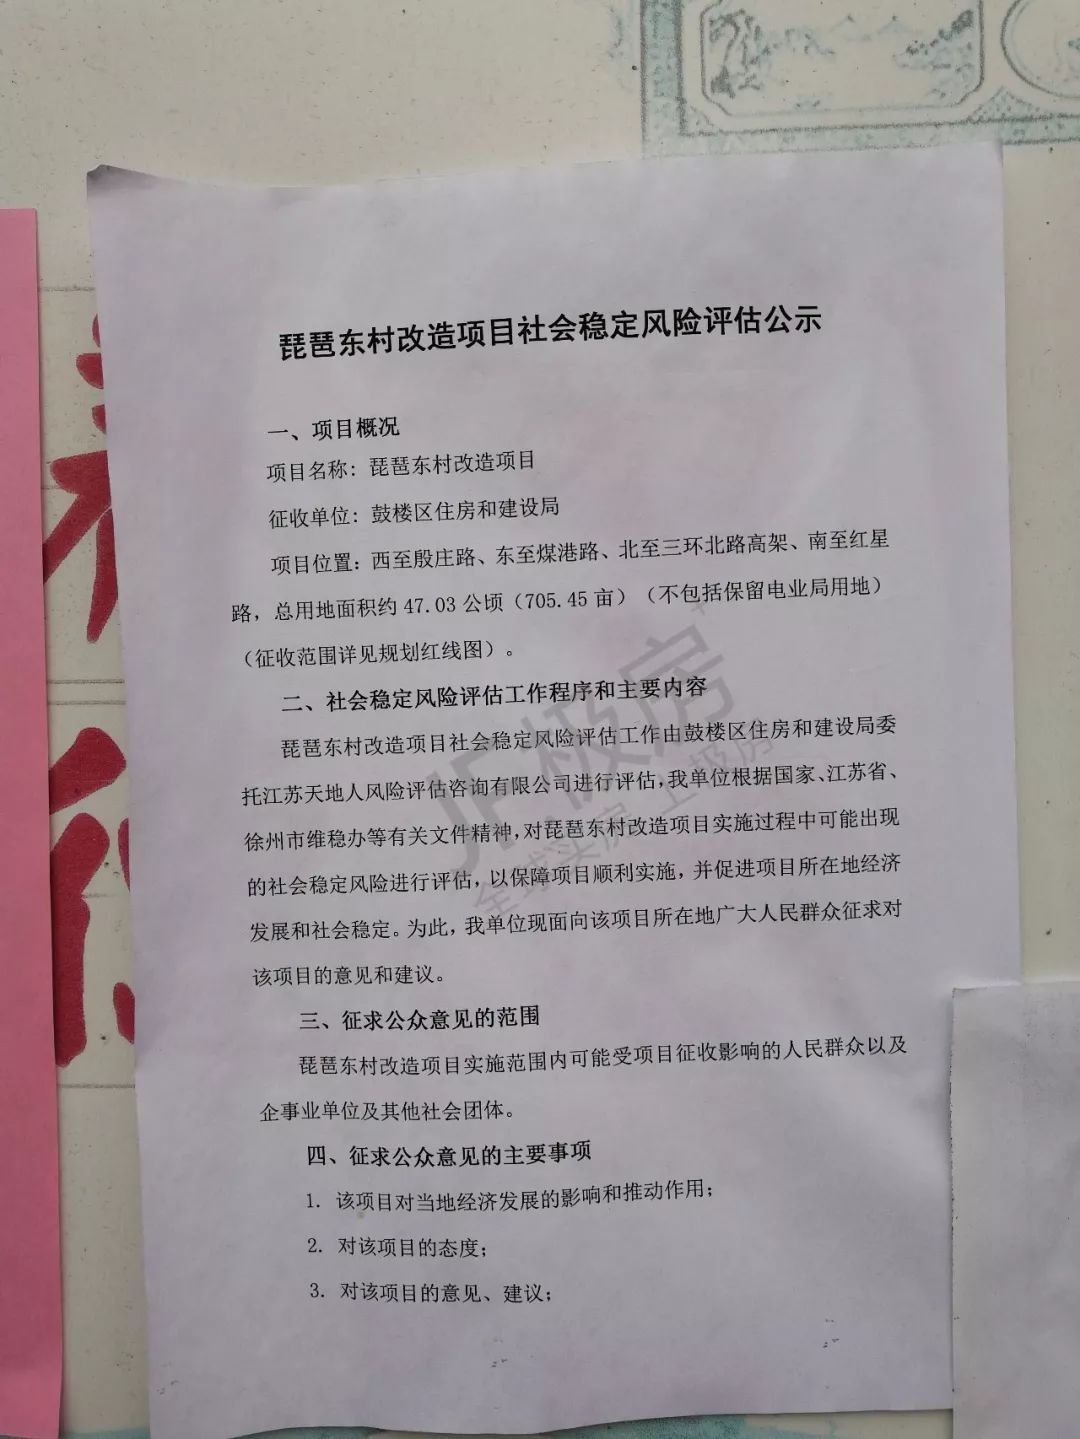 琵琶东村改造项目社会稳定风险评估公示
一、项目概况
项目名称：琵琶东村改造项目
征收单位：鼓楼区住房和建设局
项目位置：西至殷庄路、东至煤港路、北至三环北路高架、南至红星
路，总用地面积约 47.03 公顷（705.45 亩）（不包括保留电业局用地）
（征收范围详见规划红线图）。
二、社会稳定风险评估工作程序和主要内容
琵琶东村改造项目社会稳定风险评估工作由鼓楼区住房和建设局委
托江苏天地人风险评估咨询有限公司进行评估，我单位根据国家、江苏省、
徐州市维稳办等有关文件精神，对琵琶东村改造项目实施过程中可能出现
的社会稳定风险进行评估，以保障项目顺利实施，并促进项目所在地经济
发展和社会稳定。为此，我单位现面向该项目所在地广大人民群众征求对
该项目的意见和建议。
三、征求公众意见的范围
琵琶东村改造项目实施范围内可能受项目征收影响的人民群众以及
企事业单位及其他社会团体。
四、征求公众意见的主要事项
1. 该项目对当地经济发展的影响和推动作用；
2. 对该项目的态度；
3. 对该项目的意见、建议；
JF极房
全球买房 上极房